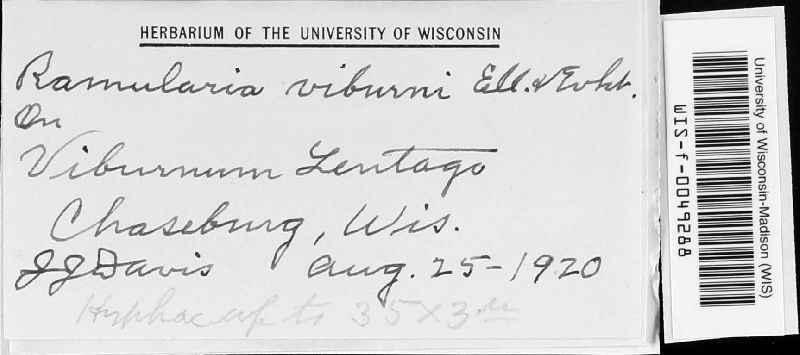 HERBARIUM OF THE UNIVERSITY OF WISCONSIN
Ramularia viburni Ell. & Evht.
On
Viburnum Lentago
Chaseburg, Wis.
JJ Davis Aug. 25-1920
Hyphae up to 35 x 3 µ
University of Wisconsin-Madison (WIS)
WIS-f-0049288